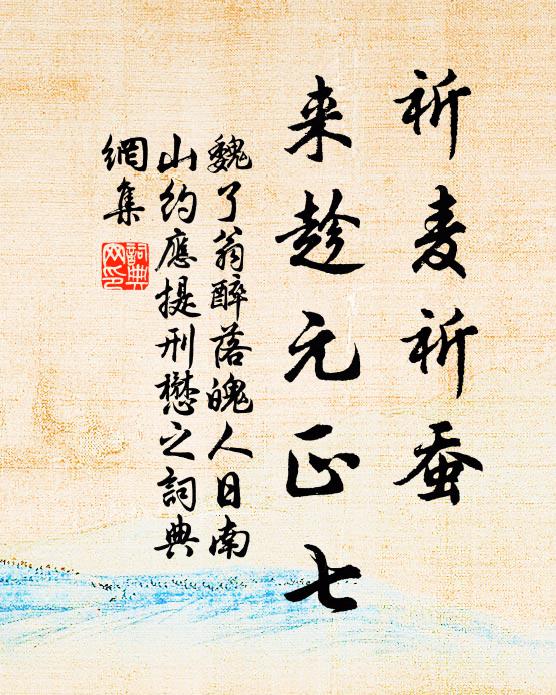 祈麦祈蚕
来趁元正七
魏了翁醉落魄人日南
山约應提刑懋之詞典
網集
詞典网印